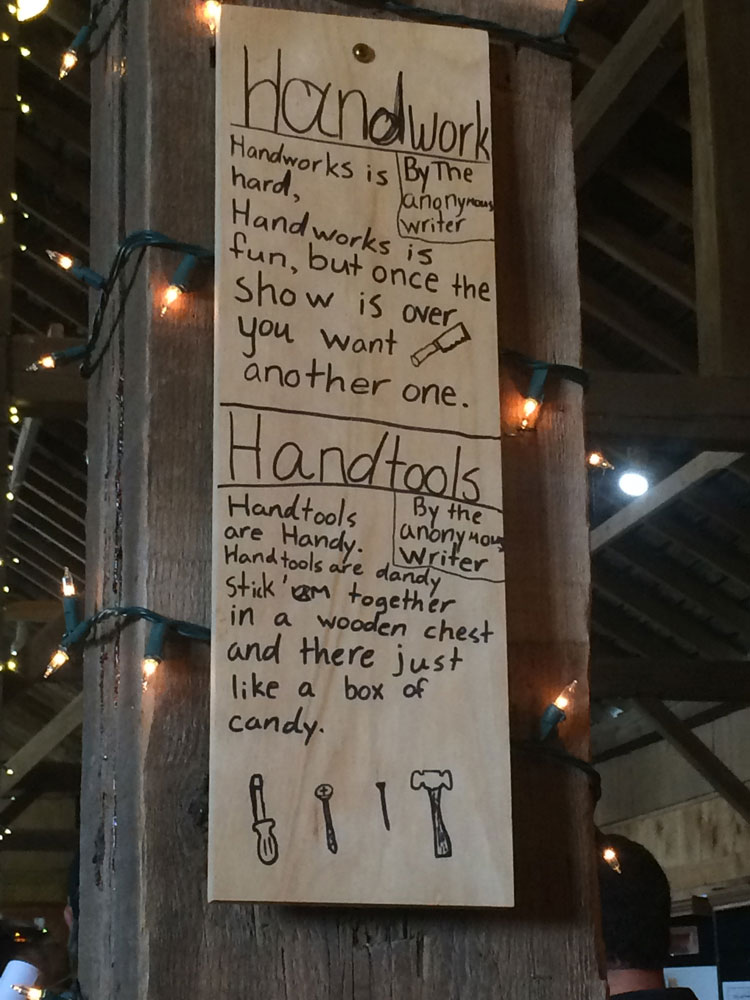 Handwork
By The
anonymous
writer
Handworks is
hard,
Handworks is
fun, but once the
show is over
you want
another one.
Handtools
By the
anonymous
writer
Handtools
are Handy.
Handtools are dandy
stick 'em together
in a wooden chest
and there just
like a box of
candy.